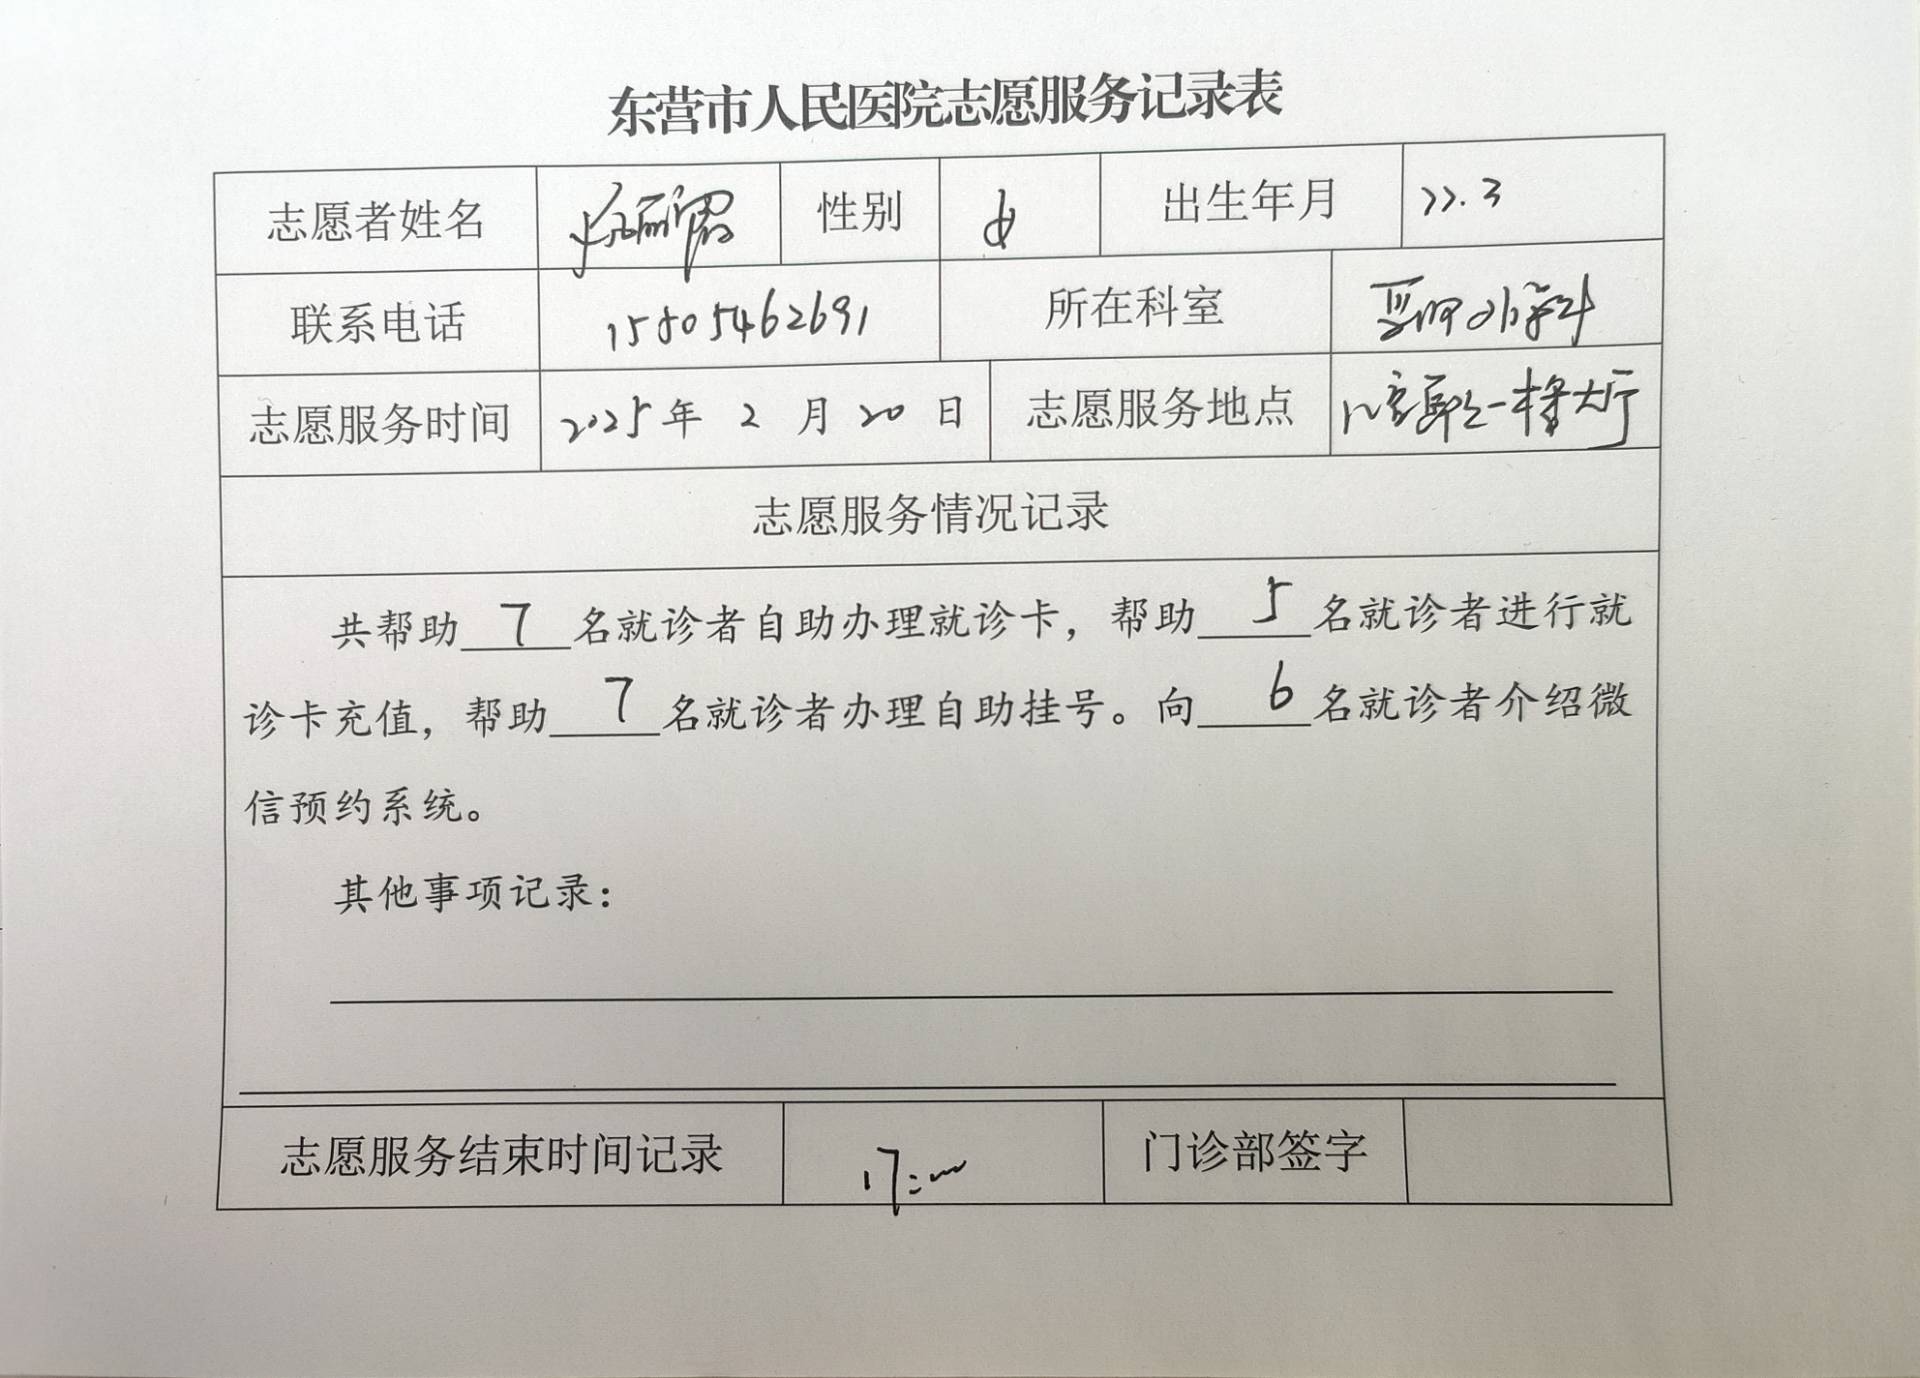 东营市人民医院志愿服务记录表
志愿者姓名 性别 女 出生年月 77.3
联系电话 15805462691 所在科室
志愿服务时间 2025年 2 月 20 日 志愿服务地点 一楼大厅
志愿服务情况记录
共帮助 7 名就诊者自助办理就诊卡，帮助 5 名就诊者进行就
诊卡充值，帮助 7 名就诊者办理自助挂号。向 6 名就诊者介绍微
信预约系统。
其他事项记录：
志愿服务结束时间记录 17:00 门诊部签字